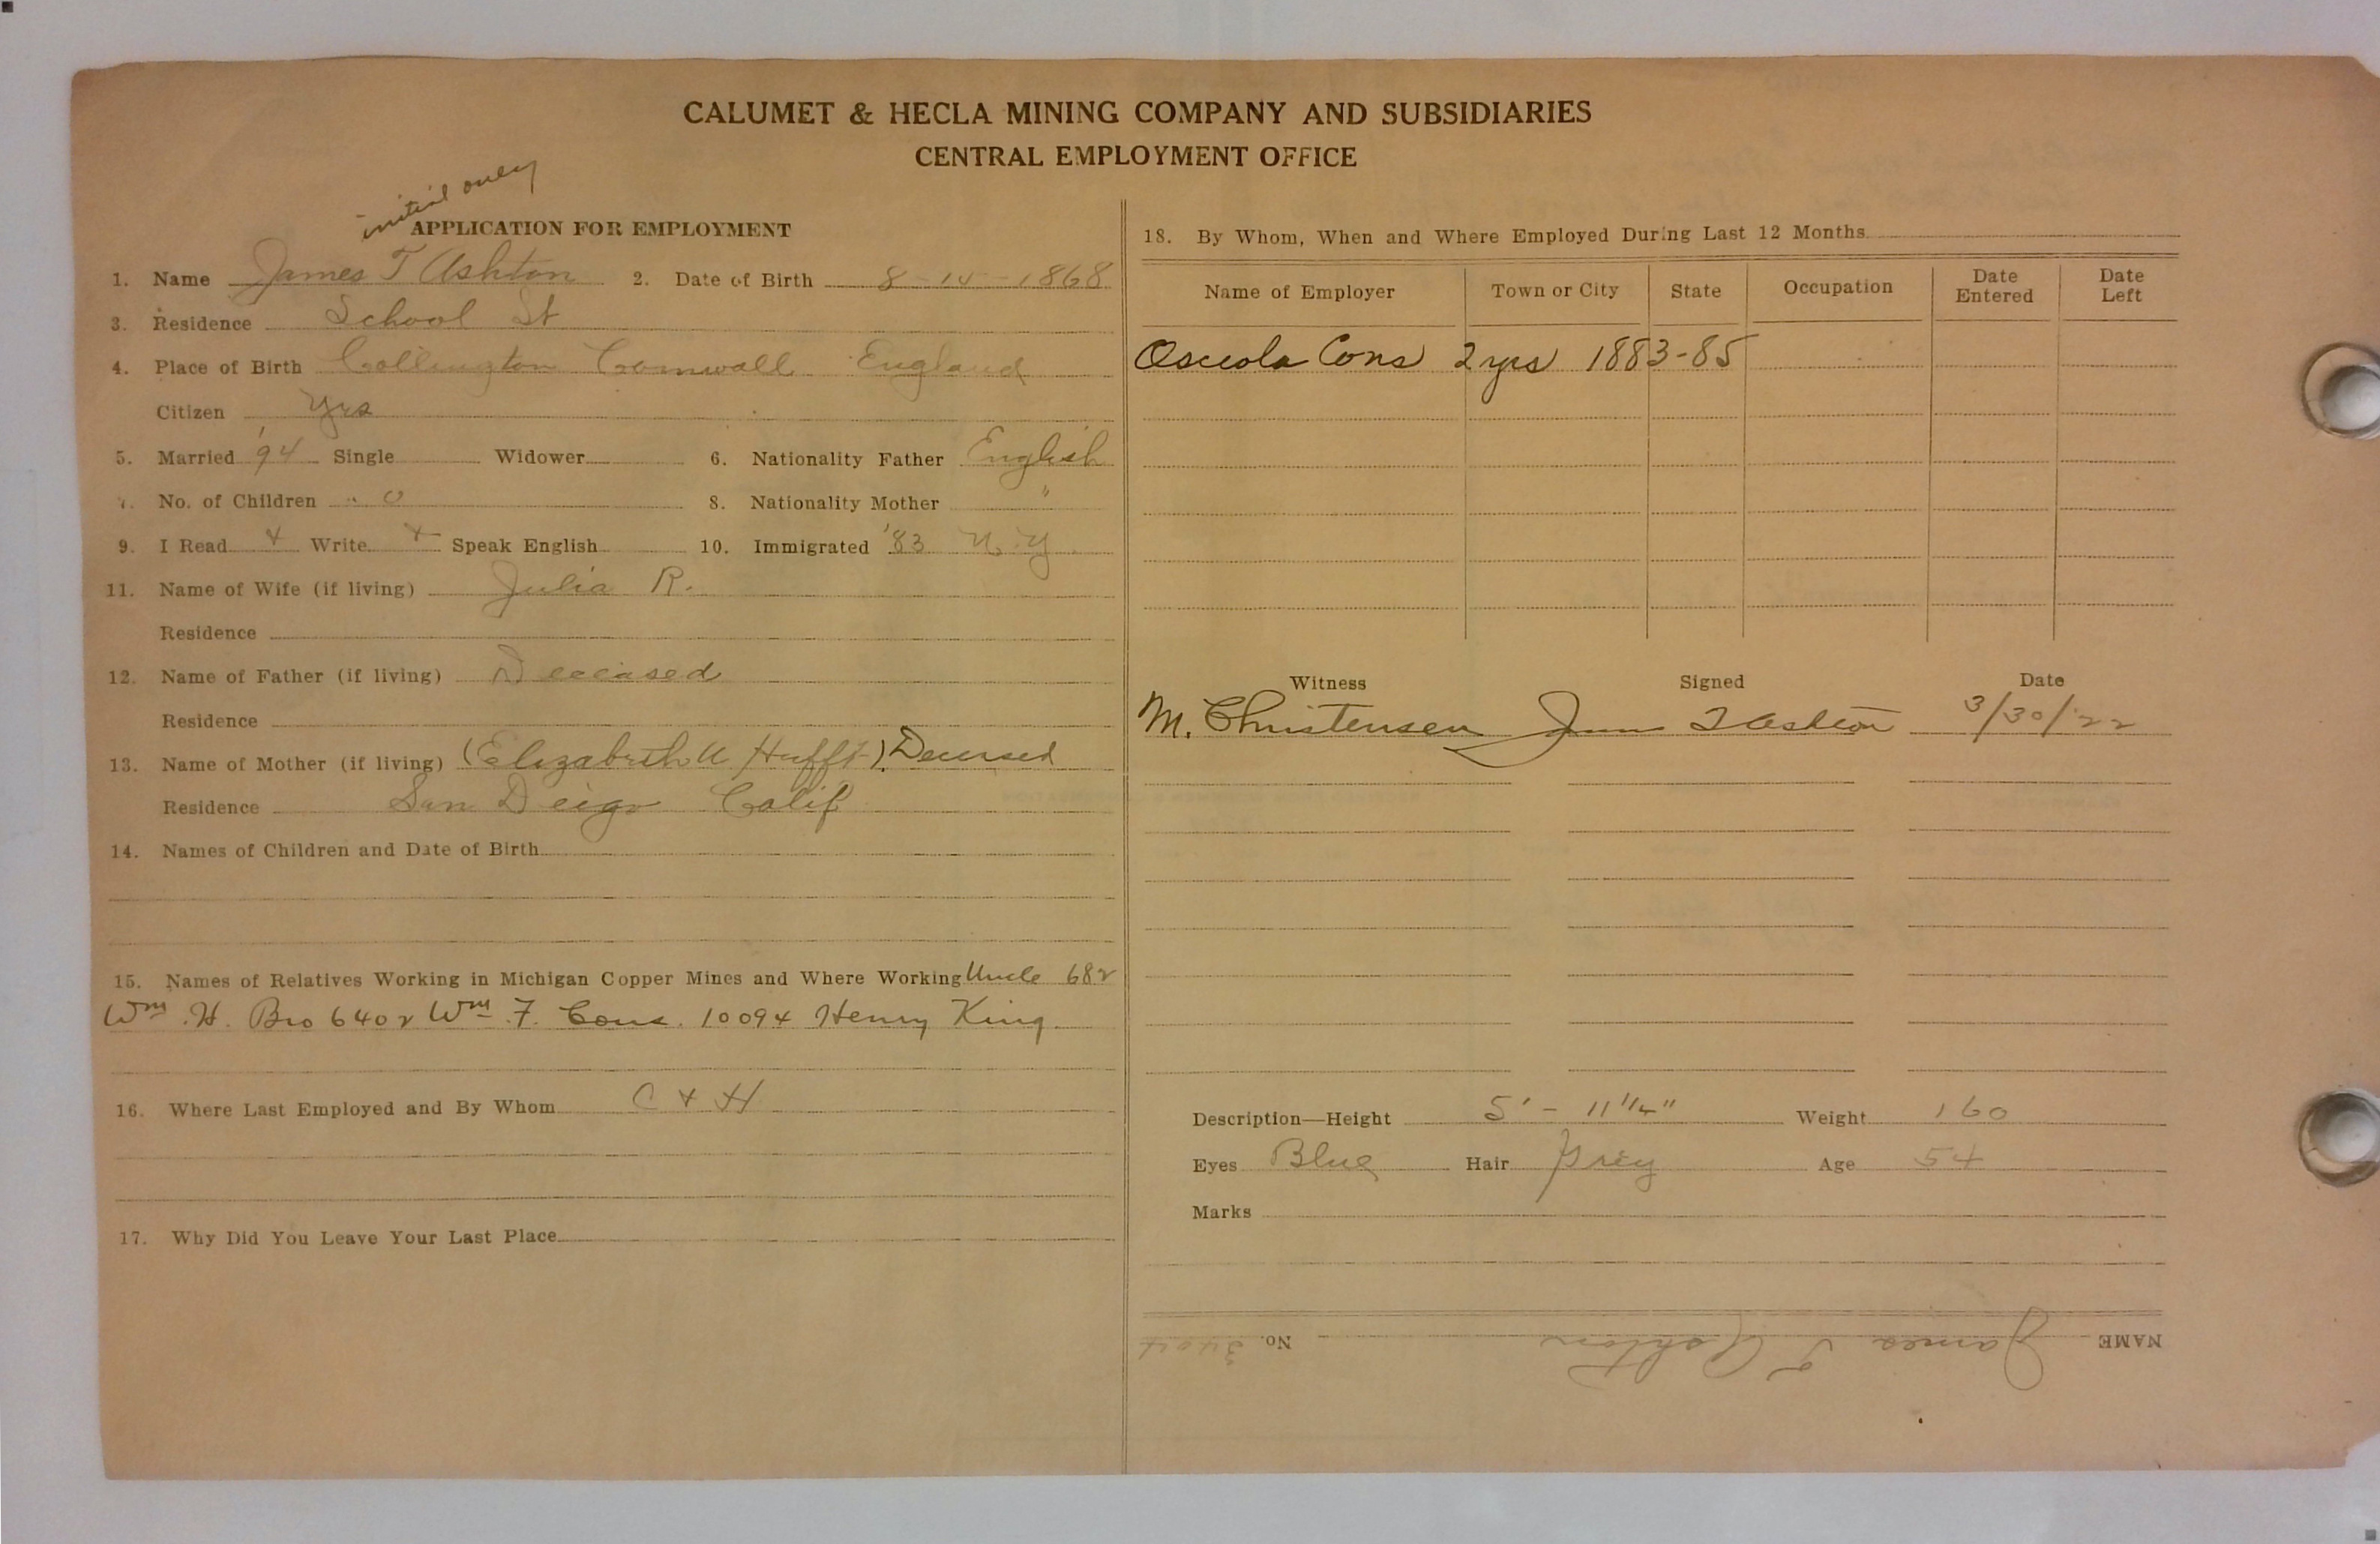 CALUMET & HECLA MINING COMPANY AND SUBSIDIARIES
CENTRAL EMPLOYMENT OFFICE
initial only
APPLICATION FOR EMPLOYMENT
1. Name James T Ashton 2. Date of Birth 8-14-1868
3. Residence School St
4. Place of Birth Collington Cornwall England
Citizen Yes
5. Married '94 Single Widower 6. Nationality Father English
7. No. of Children 0 8. Nationality Mother "
9. I Read x Write x Speak English 10. Immigrated '83 N.Y.
11. Name of Wife (if living) Julia R.
Residence
12. Name of Father (if living) Deceased
Residence
13. Name of Mother (if living) (Elizabeth Hufft) Deceased
Residence San Deigo Calif
14. Names of Children and Date of Birth
15. Names of Relatives Working in Michigan Copper Mines and Where Working Uncle 682
Wm. H. Bro 6402 Wm. F. Cous. 10094 Henry King
16. Where Last Employed and By Whom C & H
17. Why Did You Leave Your Last Place
18. By Whom, When and Where Employed During Last 12 Months
Name of Employer Town or City State Occupation Date Entered Date Left
Osceola Cons 2 yrs 1883-85
Witness Signed Date
M. Christensen James T Ashton 3/30/22
Description—Height 5' - 11 1/4" Weight 160
Eyes Blue Hair Grey Age 54
Marks
NAME James T Ashton No. 3404